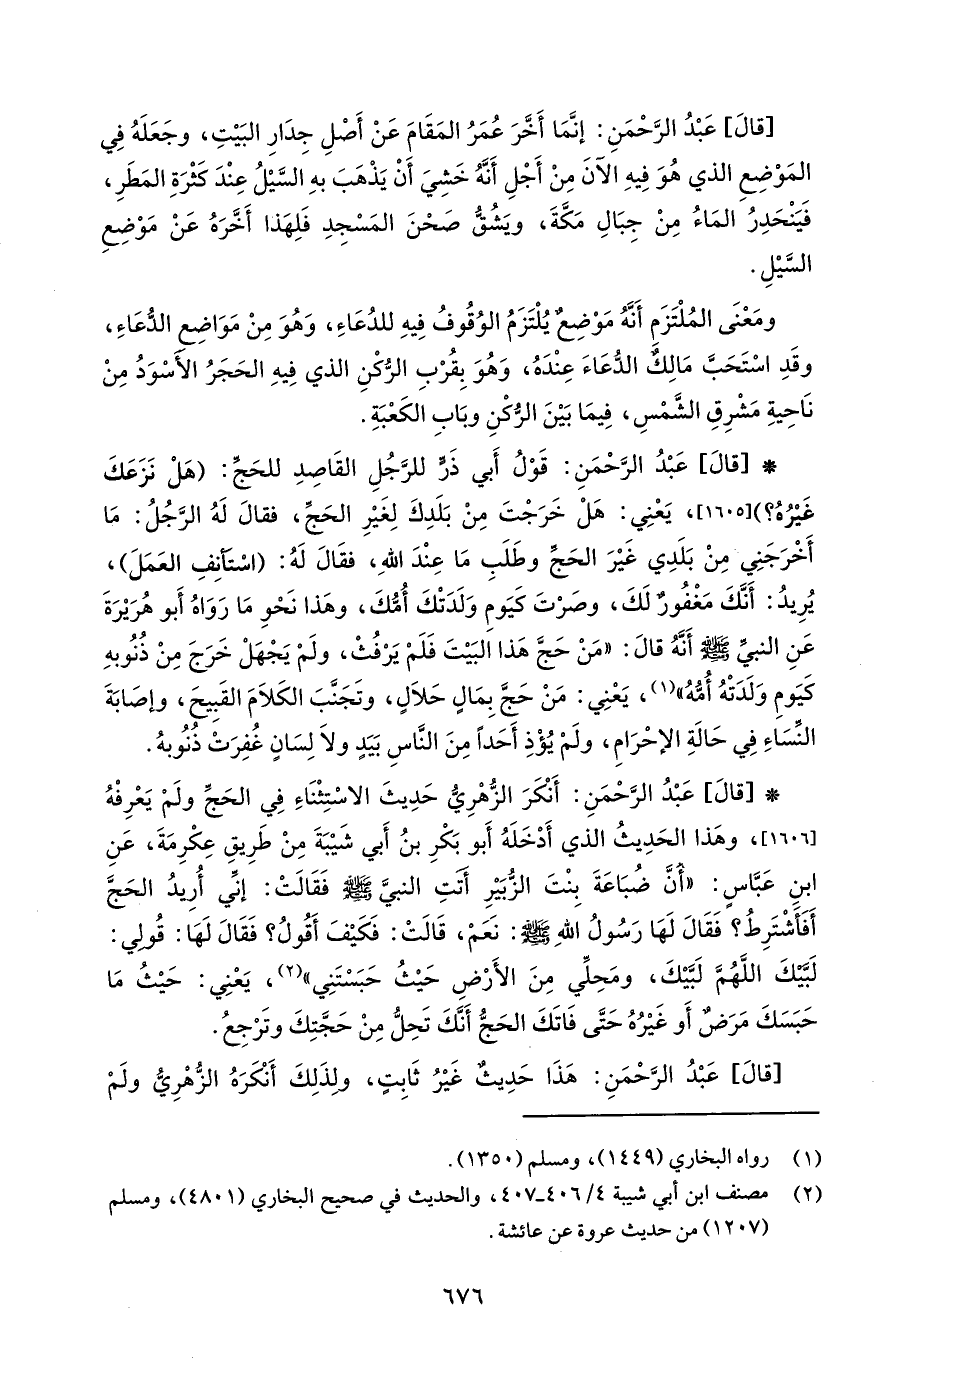 [قالَ] عَبْدُ الرَّحْمَنِ: إنَّمَا أَخَّرَ عُمَرُ المَقَامَ عَنْ أَصْلِ جِدَارِ البَيْتِ، وجَعَلَهُ فِي
المَوْضِعِ الذي هُوَ فِيهِ الآنَ مِنْ أَجْلِ أَنَّهُ خَشِيَ أَنْ يَذْهَبَ بهِ السَّيْلُ عِنْدَ كَثْرَةِ المَطَرِ،
فَيَنْحَدِرُ المَاءُ مِنْ جِبَالِ مَكَّةَ، ويَشُقُّ صَحْنَ المَسْجِدِ فَلِهَذا أَخَّرَهُ عَنْ مَوْضِعِ
السَّيْلِ.
ومَعْنَى المُلْتَزَمِ أَنَّهُ مَوْضِعٌ يُلْتَزَمُ الوُقُوفُ فِيهِ للدُعَاءِ، وَهُوَ مِنْ مَوَاضِعِ الدُّعَاءِ،
وقَدِ اسْتَحَبَّ مَالِكٌ الدُّعَاءَ عِنْدَهُ، وَهُوَ بِقُرْبِ الرُّكْنِ الذي فِيهِ الحَجَرُ الأَسْوَدُ مِنْ
نَاحِيةِ مَشْرِقِ الشَّمْسِ، فِيمَا بَيْنَ الرُّكْنِ وبَابِ الكَعْبَةِ.
* [قالَ] عَبْدُ الرَّحْمَنِ: قَوْلُ أَبي ذَرٍّ للرَّجُلِ القَاصِدِ للحَجِّ: (هَلْ نَزَعَكَ
غَيْرُهُ؟)[١٦٠٥]، يَعْنِي: هَلْ خَرَجْتَ مِنْ بَلَدِكَ لِغَيْرِ الحَجِّ، فقالَ لَهُ الرَّجُلُ: مَا
أَخْرَجَنِي مِنْ بَلَدِي غَيْرَ الحَجِّ وطَلَبِ مَا عِنْدَ اللهِ، فقَالَ لَهُ: (اسْتَأنِفِ العَمَلَ)،
يُرِيدُ: أَنَّكَ مَغْفُورٌ لَكَ، وصَرْتَ كَيَومِ وَلَدَتْكَ أُمُّكَ، وهَذا نَحْوِ مَا رَوَاهُ أَبو هُرَيْرَةَ
عَنِ النبيِّ ﷺ أَنَّهُ قالَ: «مَنْ حَجَّ هَذا البَيْتَ فَلَمْ يَرْفُثْ، ولَمْ يَجْهَلْ خَرَجَ مِنْ ذُنُوبهِ
كَيَومِ وَلَدَتْهُ أُمُّهُ»(١)، يَعْنِي: مَنْ حَجَّ بِمَالٍ حَلَالٍ، وتَجَنَّبَ الكَلَامَ القَبِيحَ، وإصَابَةَ
النِّسَاءِ فِي حَالَةِ الإحْرامِ، ولَمْ يُؤْذِ أَحَداً مِنَ النَّاسِ بَيَدٍ ولَا لِسَانٍ غُفِرَتْ ذُنُوبهُ.
* [قالَ] عَبْدُ الرَّحْمَنِ: أَنْكَرَ الزُّهْرِيُّ حَدِيثَ الاسْتِثْنَاءِ فِي الحَجِّ ولَمْ يَعْرِفْهُ
[١٦٠٦]، وهَذا الحَدِيثُ الذي أَدْخَلَهُ أَبو بَكْرِ بنُ أَبي شَيْبَةَ مِنْ طَرِيقِ عِكْرِمَةَ، عَنِ
ابنِ عَبَّاسٍ: «أَنَّ ضُبَاعَةَ بِنْتَ الزُّبَيْرِ أَتَتِ النبيَّ ﷺ فَقَالَتْ: إنِّي أُرِيدُ الحَجَّ
أَفَأَشْتَرِطُ؟ فَقَالَ لَهَا رَسُولُ اللهِ ﷺ: نَعَمْ، قَالَتْ: فَكَيْفَ أَقُولُ؟ فَقَالَ لَهَا: قُولِي:
لَبَّيْكَ اللَّهُمَّ لَبَّيْكَ، ومَحِلِّي مِنَ الأَرْضِ حَيْثُ حَبَسْتَنِي»(٢)، يَعْنِي: حَيْثُ مَا
حَبَسَكَ مَرَضٌ أو غَيْرُهُ حَتَّى فَاتَكَ الحَجُّ أَنَّكَ تَحِلُّ مِنْ حَجَّتِكَ وتَرْجِعُ.
[قالَ] عَبْدُ الرَّحْمَنِ: هَذَا حَدِيثٌ غَيْرُ ثَابِتٍ، ولِذَلِكَ أَنْكَرَهُ الزُّهْرِيُّ ولَمْ
(١) رواه البخاري (١٤٤٩)، ومسلم (١٣٥٠).
(٢) مصنف ابن أبي شيبة ٤/ ٤٠٦ـ٤٠٧، والحديث في صحيح البخاري (٤٨٠١)، ومسلم
(١٢٠٧) من حديث عروة عن عائشة.
٦٧٦